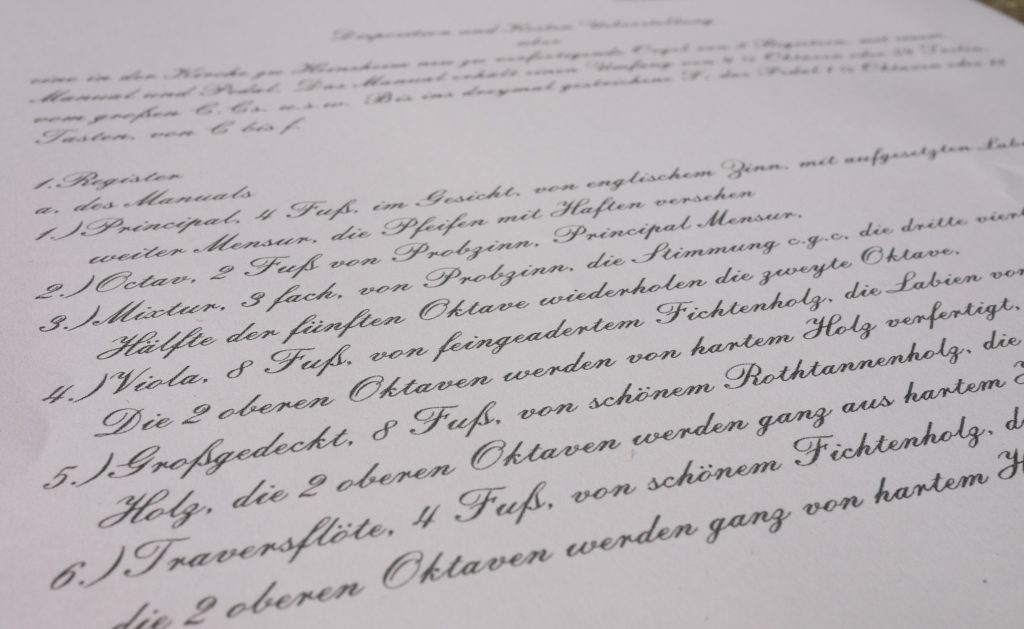 Disposition und Kosten Ueberstellung
über
eine in der Kirche zu Heinsheim neu zu verfertigende Orgel von 8 Registern, mit einem
Manual und Pedal. Das Manual erhält einen Umfang von 4 ½ Oktaven oder 54 Tasten,
vom großen C. Cs. u.s.w. Bis ins dreymal gestrichene F, das Pedal 1 ½ Oktaven oder 18
Tasten, von C bis f.
1. Register
a. des Manuals
1.) Principal, 4 Fuß, im Gesicht, von englischem Zinn, mit aufgesetzten
weiter Mensur, die Pfeifen mit Haften versehen
2.) Octav, 2 Fuß von Probzinn, Principal Mensur.
3.) Mixtur, 3 fach, von Probzinn, die Stimmung c.g.c. die dritte
Hälfte der fünften Oktave wiederholen die zweyte Oktave.
4.) Viola, 8 Fuß, von feingeadertem Fichtenholz, die Labien von
Die 2 oberen Oktaven werden von hartem Holz verfertigt.
5.) Großgedeckt, 8 Fuß, von schönem Rothtannenholz, die
Holz, die 2 oberen Oktaven werden ganz aus hartem
6.) Traversflöte, 4 Fuß, von schönem Fichtenholz,
die 2 oberen Oktaven werden ganz von hartem